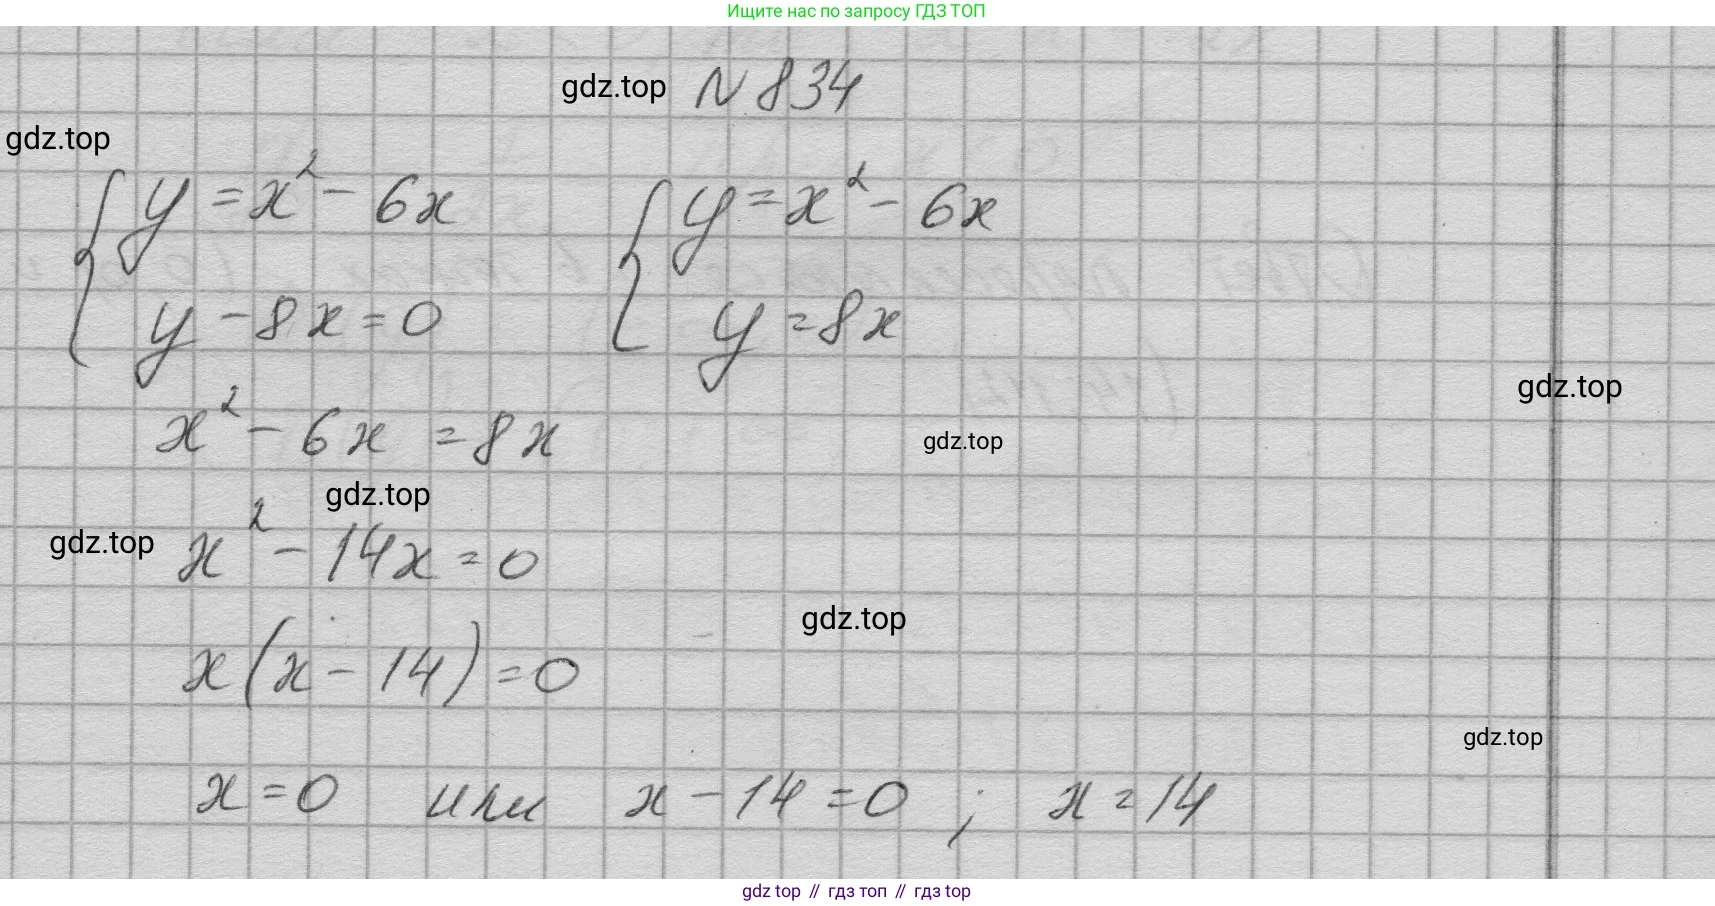 Ищите нас по запросу ГДЗ ТОП
gdz.top N 834
gdz.top
y = x² - 6x y = x² - 6x
y - 8x = 0 y = 8x
gdz.top
x² - 6x = 8x gdz.top
gdz.top
gdz.top x² - 14x = 0
gdz.top
x(x - 14) = 0
gdz.top
x = 0 или x - 14 = 0 ; x = 14
gdz top // гдз топ // гдз top